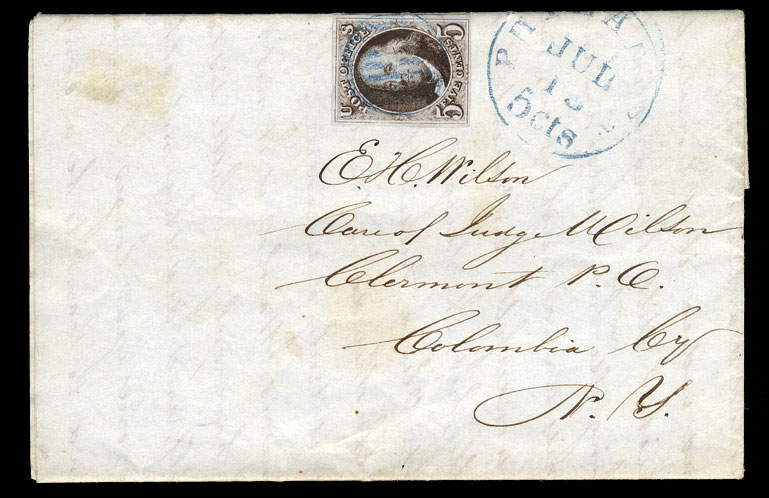 U S
POST OFFICE
FIVE CENTS
5 5
JUL
5cts
E. H. Wilson
Care of Judge Wilson
Clermont P. O.
Colombia Cy
N. Y.